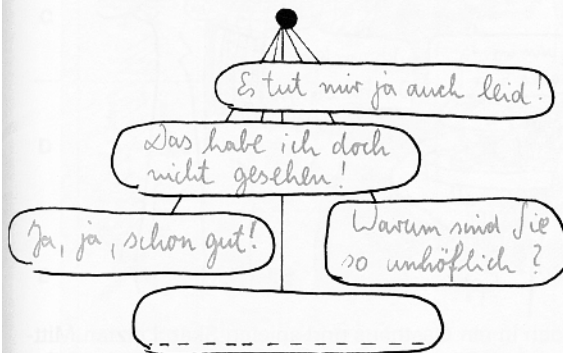 Es tut mir ja auch leid!
Das habe ich doch
nicht gesehen!
Ja, ja, schon gut!
Warum sind Sie
so unhöflich?